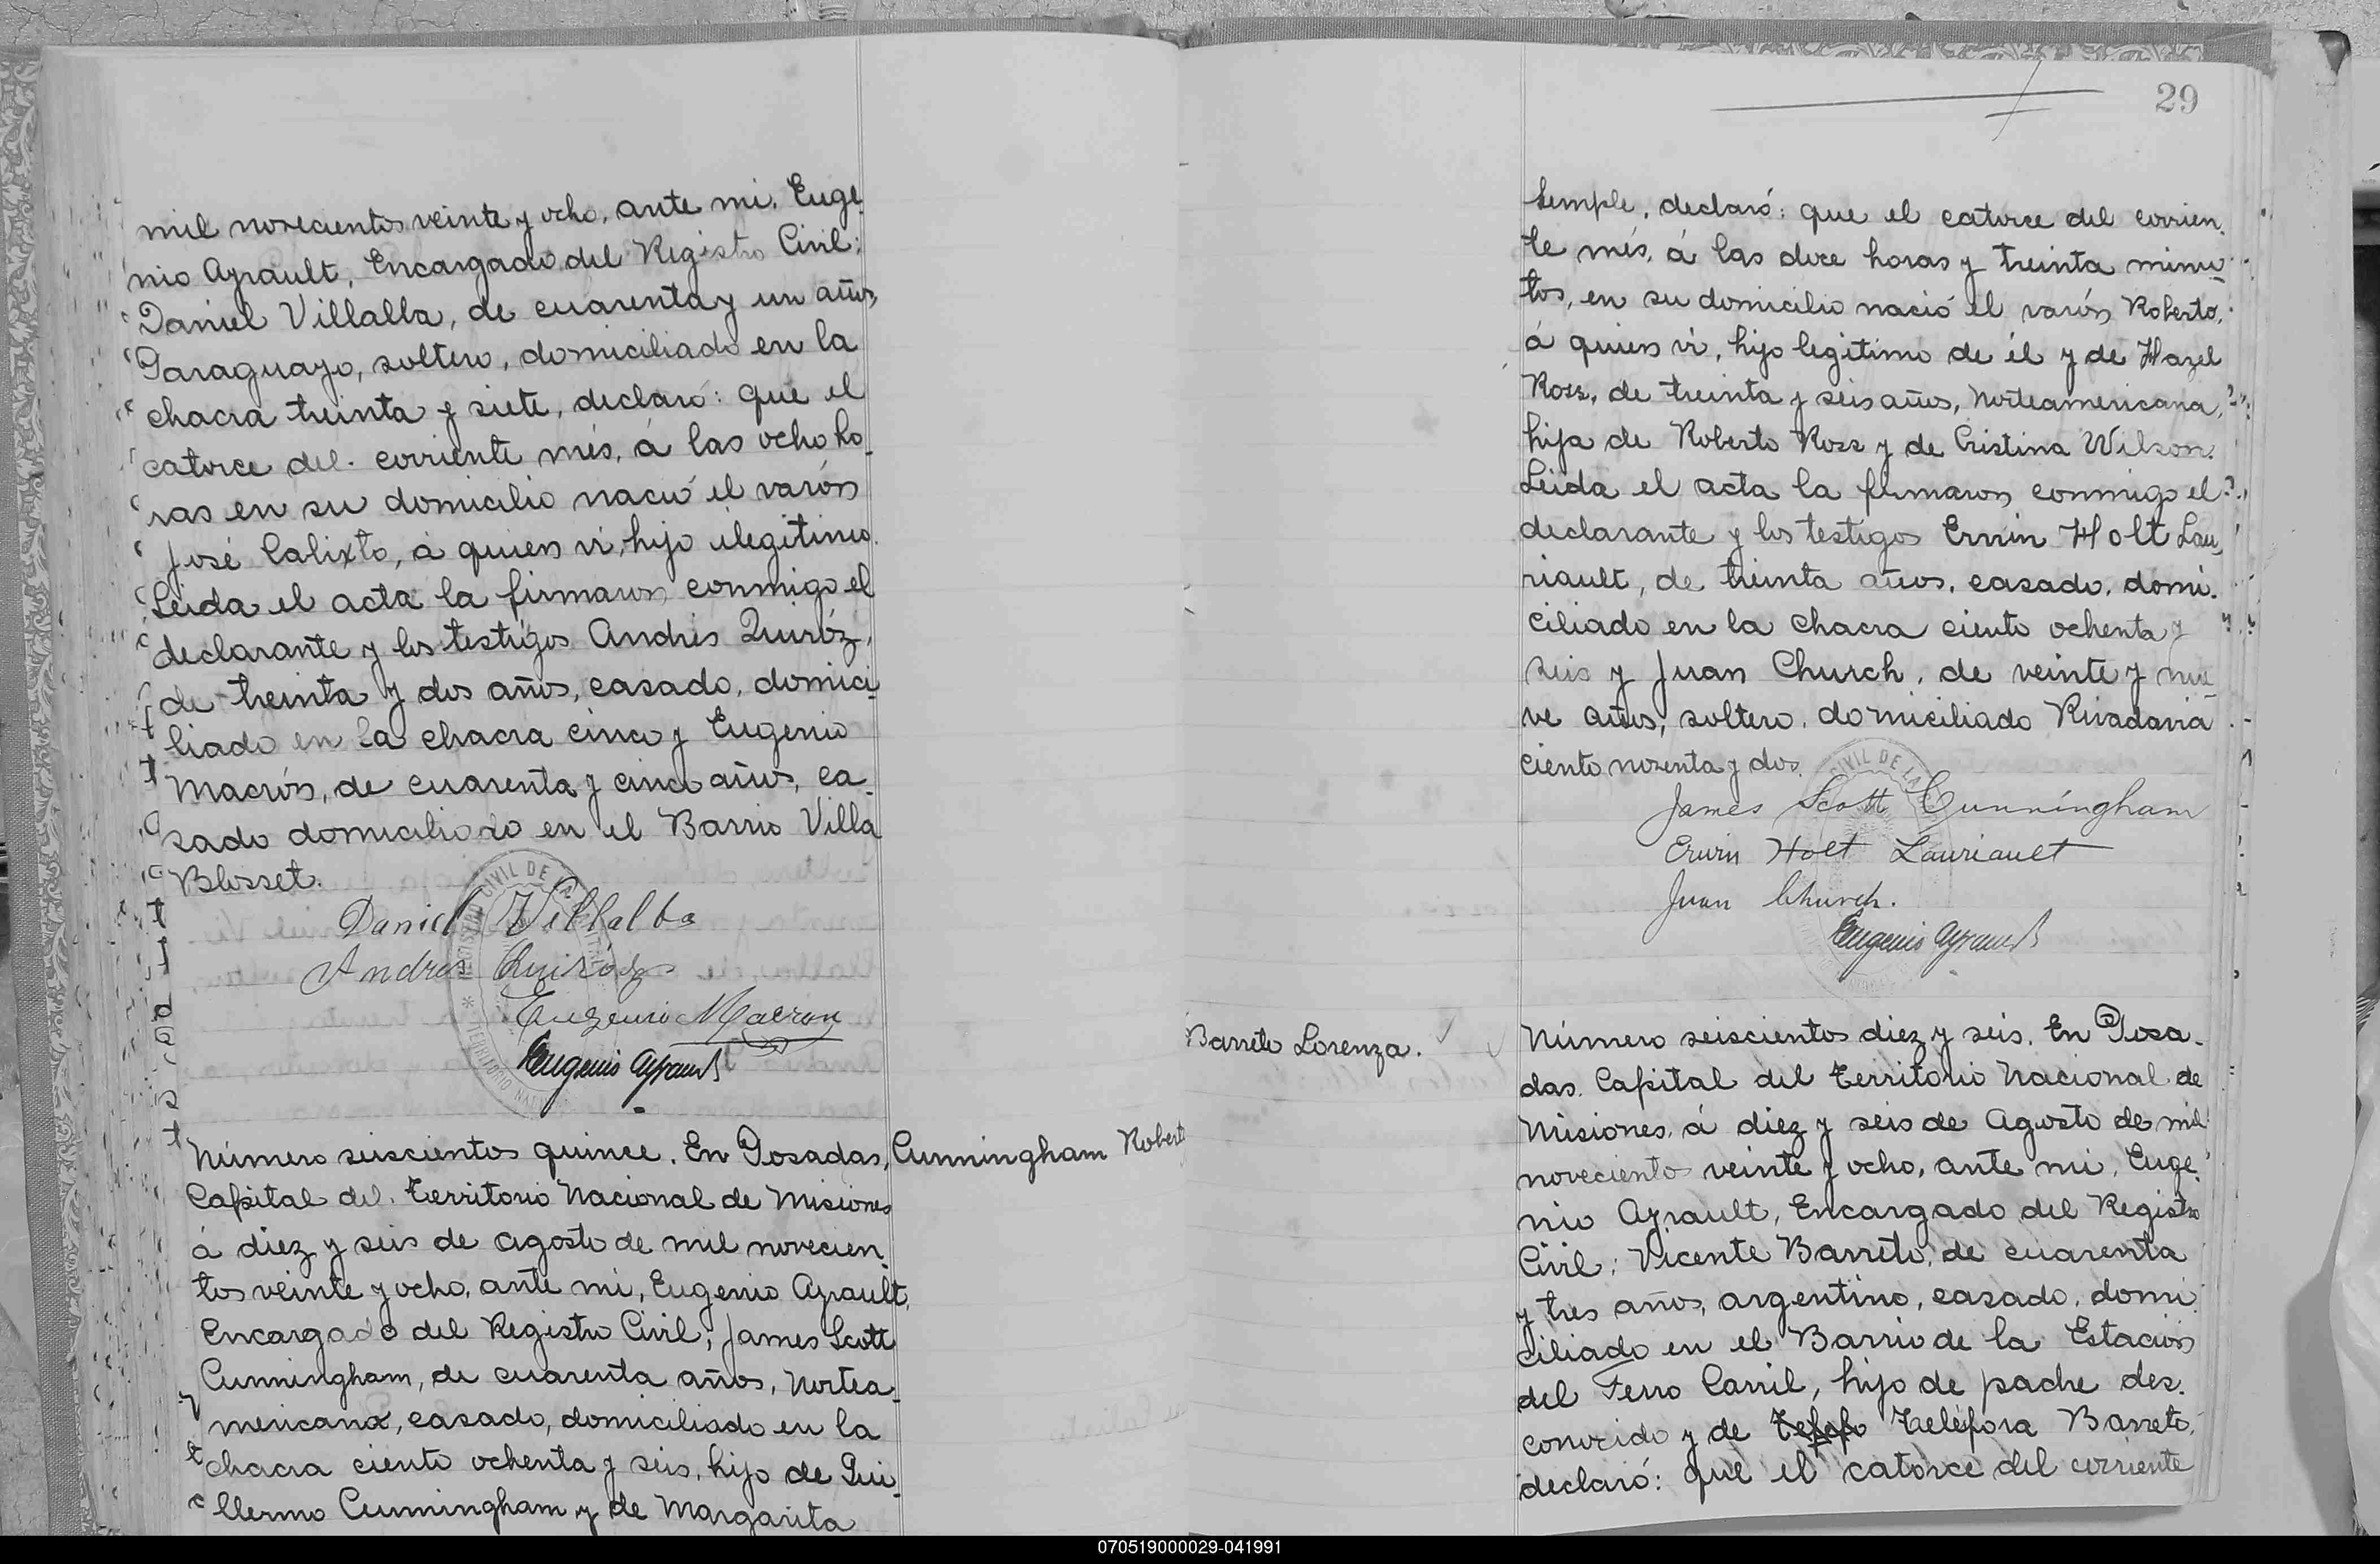 mil novecientos veinte y ocho, ante mi, Euge_
nio Ayrault, Encargado del Registro Civil;
Daniel Villalba, de cuarenta y un años,
Paraguayo, soltero, domiciliado en la
chacra treinta y siete, declaró: que el
catorce del corriente més, á las ocho ho_
ras en su domicilio nació el varón
José Calixto, á quien ví, hijo ilegitimo.
Leida el acta la firmaron conmigo el
declarante y los testigos Andrés Quiróz,
de treinta y dos años, casado, domici_
liado en la chacra cinco y Eugenio
Macrón, de cuarenta y cinco años, ca_
sado domiciliado en el Barrio Villa
Blosset.
Daniel Villalba
Andres Quiróz
Eugenio Macron
Eugenio Ayrault
REGISTRO CIVIL DE LA CAPITAL
TERRITORIO NACIONAL
Cunningham Roberto
Número seiscientos quince. En Posadas,
Capital del Territorio Nacional de Misiones
á diez y seis de agosto de mil novecien_
tos veinte y ocho, ante mi, Eugenio Ayrault,
Encargado del Registro Civil; James Scott
Cunningham, de cuarenta años, Nortea_
mericano, casado, domiciliado en la
chacra ciento ochenta y seis, hijo de Gui_
llermo Cunningham y de Margarita
29
Semple, declaró: que el catorce del corrien_
te més, á las doce horas y treinta minu_
tos, en su domicilio nació el varón Roberto,
á quien ví, hijo legitimo de él y de Hazel
Ross, de treinta y seis años, Norteamericana,
hija de Roberto Ross y de Cristina Wilson.
Leida el acta la firmaron conmigo el
declarante y los testigos Ernin Holt Lau_
riault, de treinta años, casado, domi_
ciliado en la chacra ciento ochenta y
seis y Juan Church, de veinte y nue_
ve años, soltero, domiciliado Rivadavia
ciento noventa y dos.
CIVIL DE LA
James Scott Cunningham
Erwin Holt Lauriault
Juan Church.
Eugenio Ayrault
Barreto Lorenza.
Número seiscientos diez y seis. En Posa_
das, Capital del Territorio Nacional de
Misiones, á diez y seis de Agosto de mil
novecientos veinte y ocho, ante mi, Euge_
nio Ayrault, Encargado del Registro
Civil; Vicente Barreto, de cuarenta
y tres años, argentino, casado, domi_
ciliado en el Barrio de la Estación
del Ferro Carril, hijo de padre des_
conocido y de Teléfora Barreto,
declaró: que el catorce del corriente
070519000029-041991